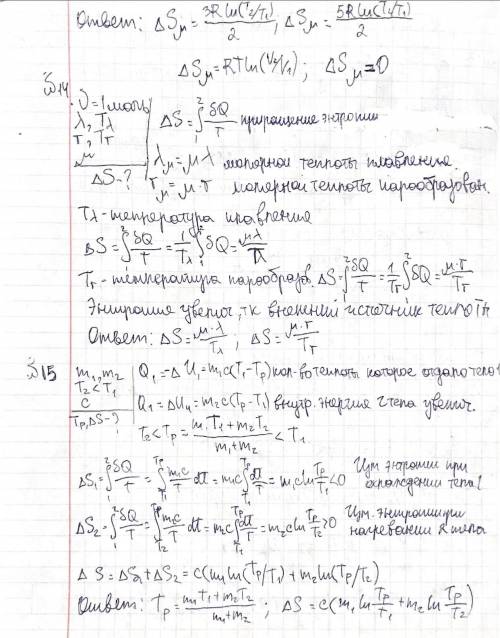 Ответ: ΔSμ = 3R ln(T2/T1)/2; ΔSμ = 5R ln(T2/T1)/2
ΔSμ = RT ln(V2/V1); ΔSμ = 0
№14
ν = 1 моль
λ, Tλ
r, Tr
μ
ΔS - ?
ΔS = ∫₁² δQ/T приращение энтропии
λμ = μ·λ молярной теплоты плавления
rμ = μ·r молярной теплоты парообразован.
Tλ - температура плавления
ΔS = ∫₁² δQ/T = 1/Tλ ∫₁² δQ = μλ/Tλ
Tr - температура парообразов. ΔS = ∫₁² δQ/T = 1/Tr ∫₁² δQ = μ·r/Tr
Энтропия увелич, тк внешний источник теплоты
Ответ: ΔS = μ·λ/Tλ; ΔS = μ·r/Tr
№15
m1, m2
T2 < T1
c
Tp, ΔS - ?
Q1 = ΔU1 = m1c(T1 - Tp) кол-во теплоты которое отдало тело 1
Q1 = ΔU4 = m2c(Tp - T1) внутр. энергия 2 тела увелич.
T2 < Tp = m1T1 + m2T2/m1 + m2 < T1
ΔS1 = ∫₁² δQ/T = ∫ m1c/T dt = m1c ∫ dt/T = m1c ln Tp/T1 < 0 Изм энтропии при
охлаждении тела 1
ΔS2 = ∫₁² δQ/T = ∫ m2c/T dt = m2c ∫ dt/T = m2c ln Tp/T2 > 0 Изм. энтропии при
нагревании 2 тела
ΔS = ΔS1 + ΔS2 = c(m1 ln(Tp/T1) + m2 ln(Tp/T2)
Ответ: Tp = m1T1 + m2T2/m1 + m2; ΔS = c(m1 ln Tp/T1 + m2 ln Tp/T2)